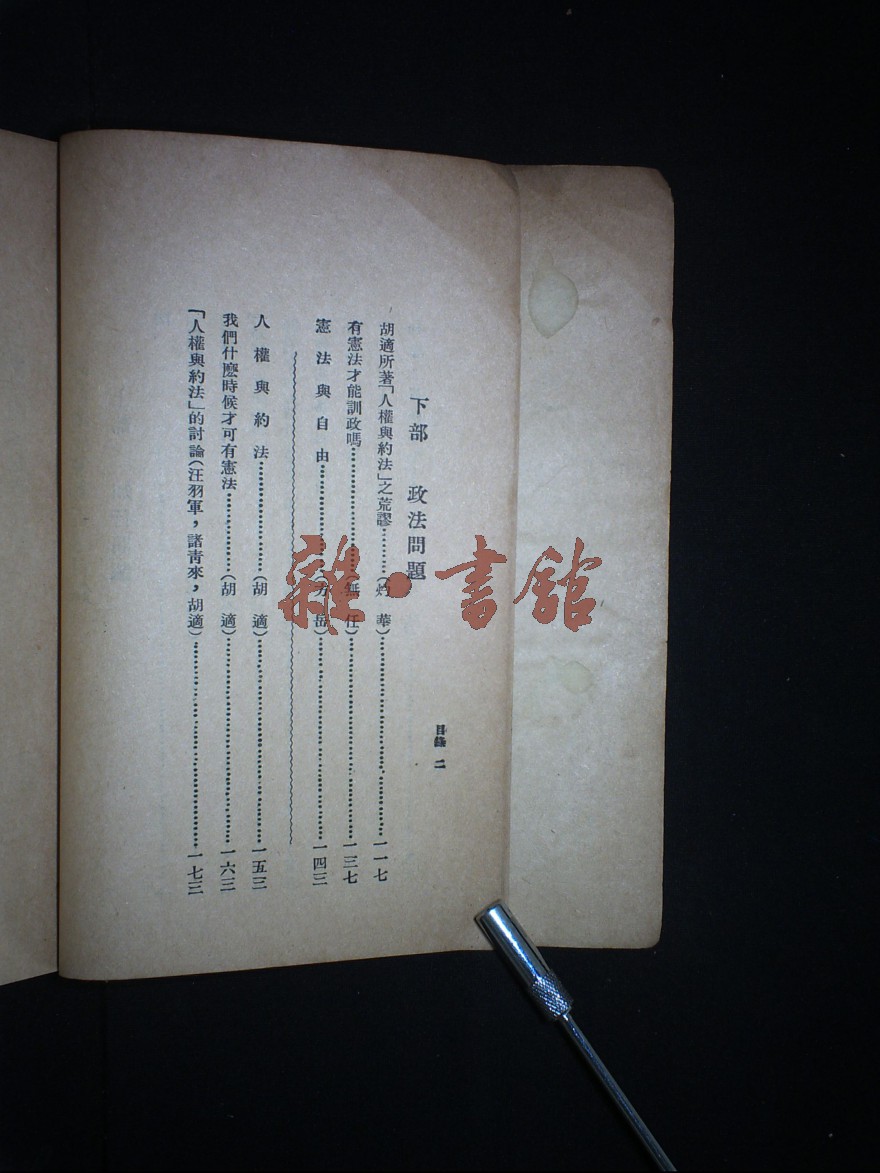 下部　政法問題
胡適所著「人權與約法」之荒謬…………(灼華)…………一一七
有憲法才能訓政嗎…………(無任)…………一三七
憲法與自由…………(方岳)…………一四三
人權與約法…………(胡適)…………一五三
我們什麽時候才可有憲法…………(胡適)…………一六三
「人權與約法」的討論(汪羽軍，諸青來，胡適)…………一七三
目錄　二
雜·書館